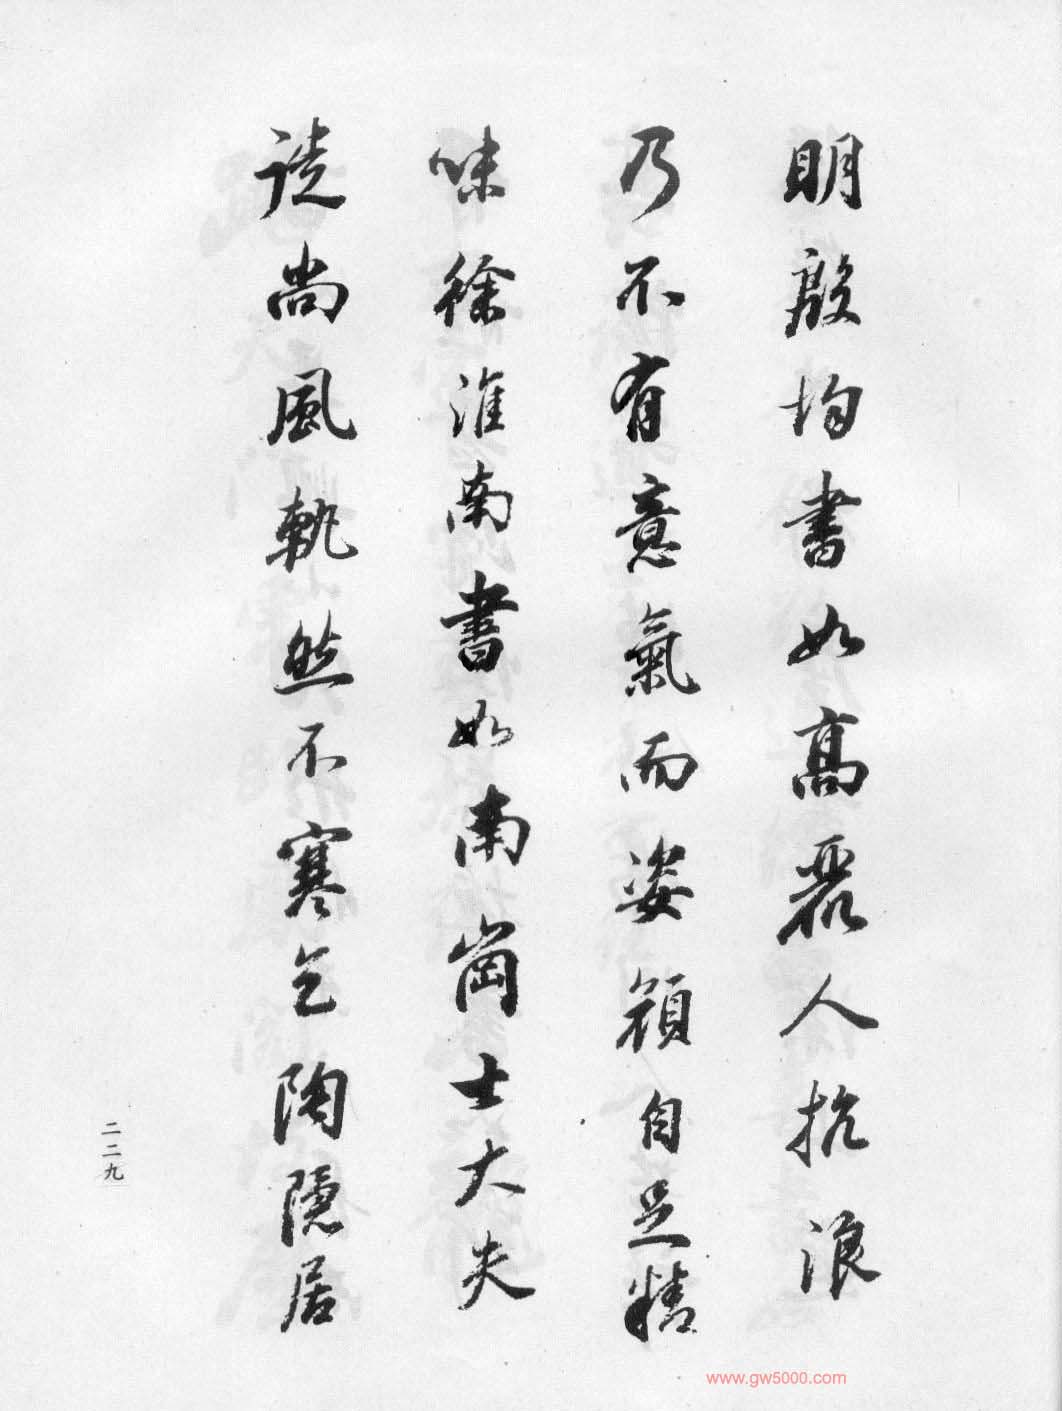 明殷均書如高麗人抗浪
乃不有意氣而姿顔自足精
味徐淮南書如南崗士大夫
徒尚風軌然不寒乞陶隱居
二二九
www.gw5000.com